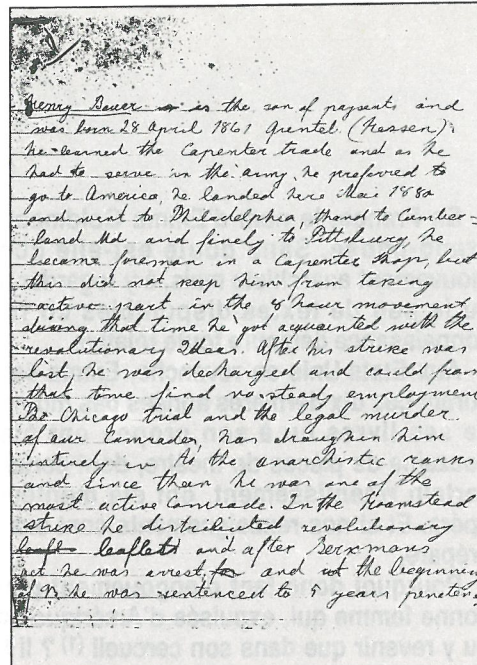 Henry Bauer is the son of paysents and
was born 28 April 1861 (Hessen).
he learned the Capenter trade and as he
had to serve in the army, he preferred to
go to America, he landed here Mai 1880
and went to Philadelphia, thand to Cumber-
land Md, and finely to Pittsburg, he
became foreman in a Capenter shop, but
this did not keep him from taking
active part in the 8 hour movement,
during that time he got aquainted with the
revolutionary Ideas. After his strike was
lost, he was decharged and could from
that time find no steady employment
The Chicago trial and the legal murder
of our Comrades, has him
intirely in to the anarchistic ranks
and since than he was one of the
most active Comrade. In the Hoamstead
strike he distributed revolutionary
leaflets and after Berkmans
act he was arrest and the beginning
of 93 he was sentenced to 5 years